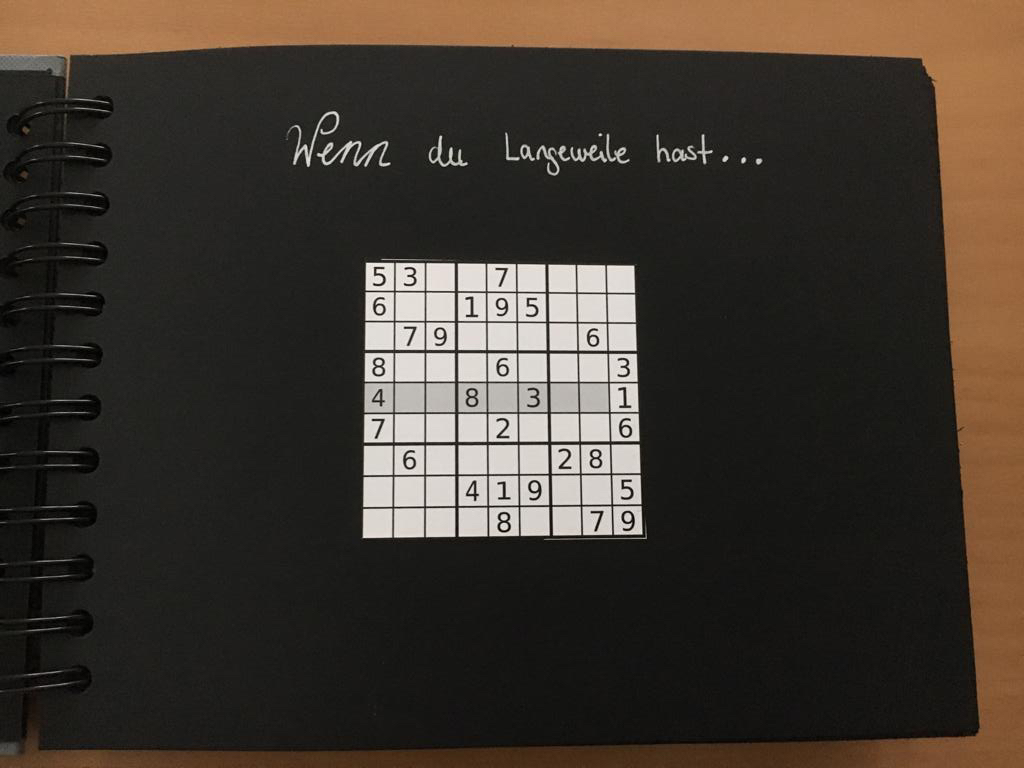 Wenn du Langeweile hast...
5 3 7
6 1 9 5
7 9 6
8 6 3
4 8 3 1
7 2 6
6 2 8
4 1 9 5
8 7 9